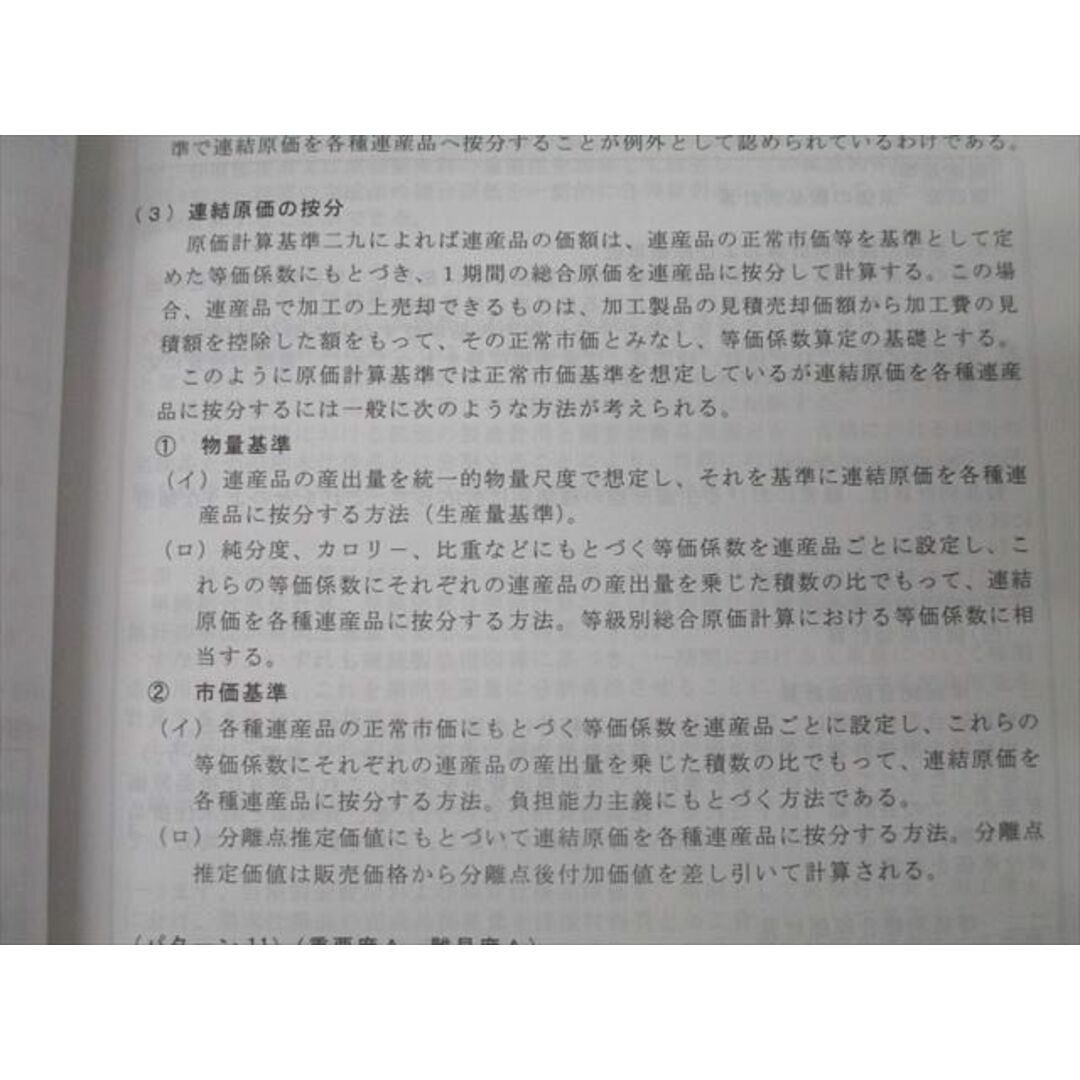 準で連結原価を各種連産品へ按分することが例外として認められているわけである。
（3）連結原価の按分
原価計算基準二九によれば連産品の価額は、連産品の正常市価等を基準として定
めた等価係数にもとづき、1期間の総合原価を連産品に按分して計算する。この場
合、連産品で加工の上売却できるものは、加工製品の見積売却価額から加工費の見
積額を控除した額をもって、その正常市価とみなし、等価係数算定の基礎とする。
このように原価計算基準では正常市価基準を想定しているが連結原価を各種連産
品に按分するには一般に次のような方法が考えられる。
① 物量基準
（イ）連産品の産出量を統一的物量尺度で想定し、それを基準に連結原価を各種連
産品に按分する方法（生産量基準）。
（ロ）純分度、カロリー、比重などにもとづく等価係数を連産品ごとに設定し、こ
れらの等価係数にそれぞれの連産品の産出量を乗じた積数の比でもって、連結
原価を各種連産品に按分する方法。等級別総合原価計算における等価係数に相
当する。
② 市価基準
（イ）各種連産品の正常市価にもとづく等価係数を連産品ごとに設定し、これらの
等価係数にそれぞれの連産品の産出量を乗じた積数の比でもって、連結原価を
各種連産品に按分する方法。負担能力主義にもとづく方法である。
（ロ）分離点推定価値にもとづいて連結原価を各種連産品に按分する方法。分離点
推定価値は販売価格から分離点後付加価値を差し引いて計算される。
（パターン11）（重要度A 難易度A）